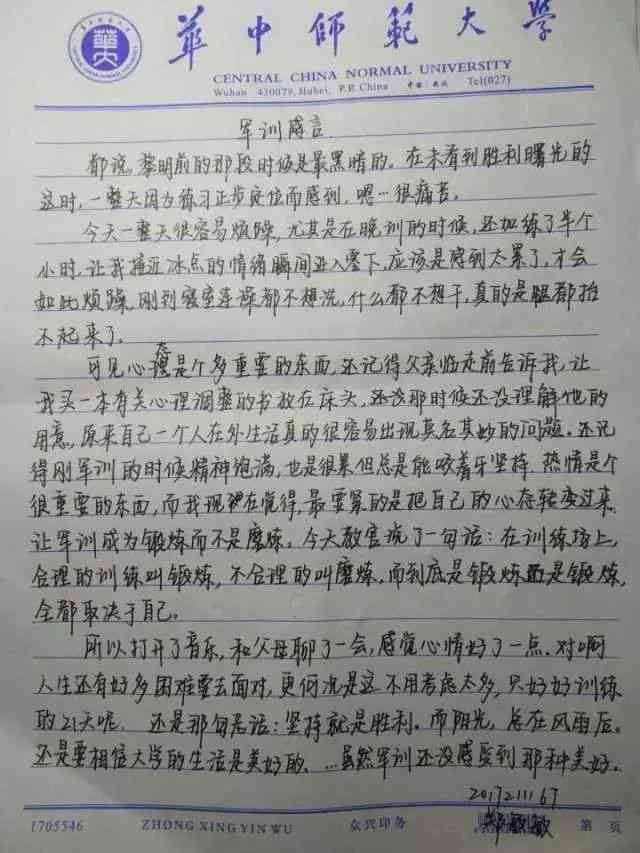 華中師範大學
CENTRAL CHINA NORMAL UNIVERSITY
Wuhan 430079, Hubei, P.R. China 中国·武汉 Tel(027)
军训感言
都说,黎明前的那段时候是最黑暗的。在未看到胜利曙光的
这时,一整天因为练习正步定位而感到,嗯…很痛苦。
今天一整天很容易烦躁,尤其是在晚训的时候,还加练了半个
小时,让我接近冰点的情绪瞬间进入零下,应该是感到太累了,才会
如此烦躁,刚到寝室连澡都不想洗,什么都不想干,真的是腿都抬
不起来了。
可见心态是个多重要的东西,还记得父亲临走前告诉我,让
我买一本有关心理调整的书放在床头,还没那时候还没理解他的
用意,原来自己一个人在外生活真的很容易出现莫名其妙的问题。还记
得刚军训的时候精神饱满,也是很累但总是能咬着牙坚持.热情是个
很重要的东西,而我现在觉得,最要紧的是把自己的心态转变过来
让军训成为锻炼而不是磨炼。今天教官说了一句话:在训练场上,
合理的训练叫锻炼,不合理的叫磨炼,而到底是锻炼还是锻炼,
全都取决于自己。
所以打开了音乐,和父母聊了一会,感觉心情好了一点.对啊
人生还有好多困难要去面对,更何况是这不用考虑太多,只好好训练
的21天呢. 还是那句老话:坚持就是胜利。而阳光,总在风雨后。
还是要相信大学的生活是美好的、…虽然军训还没感受到那种美好.
1705546 ZHONG XING YIN WU 众兴印务 第 页